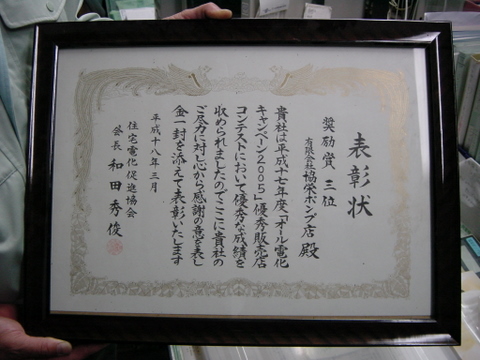 表彰状
奨励賞 三位
有限会社協栄ポンプ店 殿
貴社は平成十七年度「オール電化
キャンペーン2005」優秀販売店
コンテストにおいて優秀な成績を
収められましたのでここに貴社の
ご尽力に対し心から感謝の意を表し
金一封を添えて表彰いたします
平成十八年三月
住宅電化促進協会
会長 和田秀俊